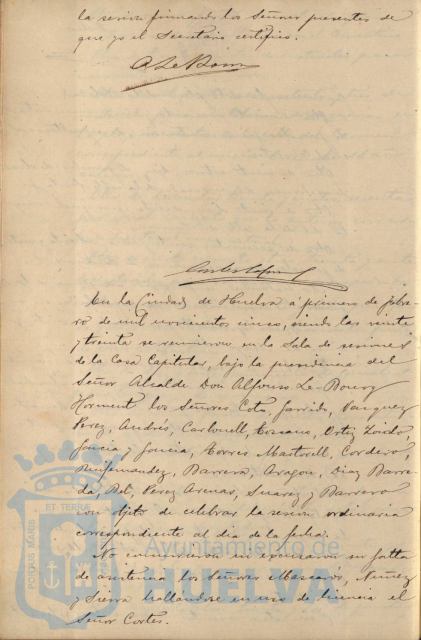 la sesion firmando los Señores presentes de
que yo el Secretario certifico.
A Le Bourg
En la Ciudad de Huelva á primero de Febre-
ro de mil novecientos cinco, siendo las veinte
y treinta se reunieron en la Sala de sesiones
de la Casa Capitular, bajo la presidencia del
Señor Alcalde Don Alfonso Le-Bourg
Horment los Señores Coto, Garrido, Vazquez
Perez, Andrés, Carbonell, Ortiz
Garcia y Garcia, Torres Martorell, Cordero,
Barrera, Aragon, Diaz Barre-
da, Bel, Perez Arenas, Suarez y Barrero
con objeto de celebrar la sesion ordinaria
correspondiente al dia de la fecha.
No concurrieron ni excusaron su falta
de asistencia los Señores Mascarós, Nuñez
y Sierra hallandose en uso de licencia el
Señor Cortes.
PORTUS MARIS
ET TERRAE
Ayuntamiento de
HUELVA